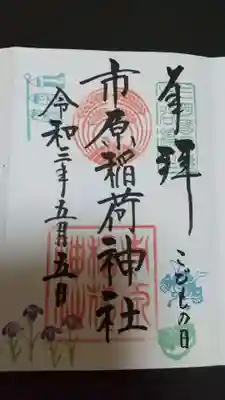 奉拝
こどもの日
市原稲荷神社
令和二年五月五日